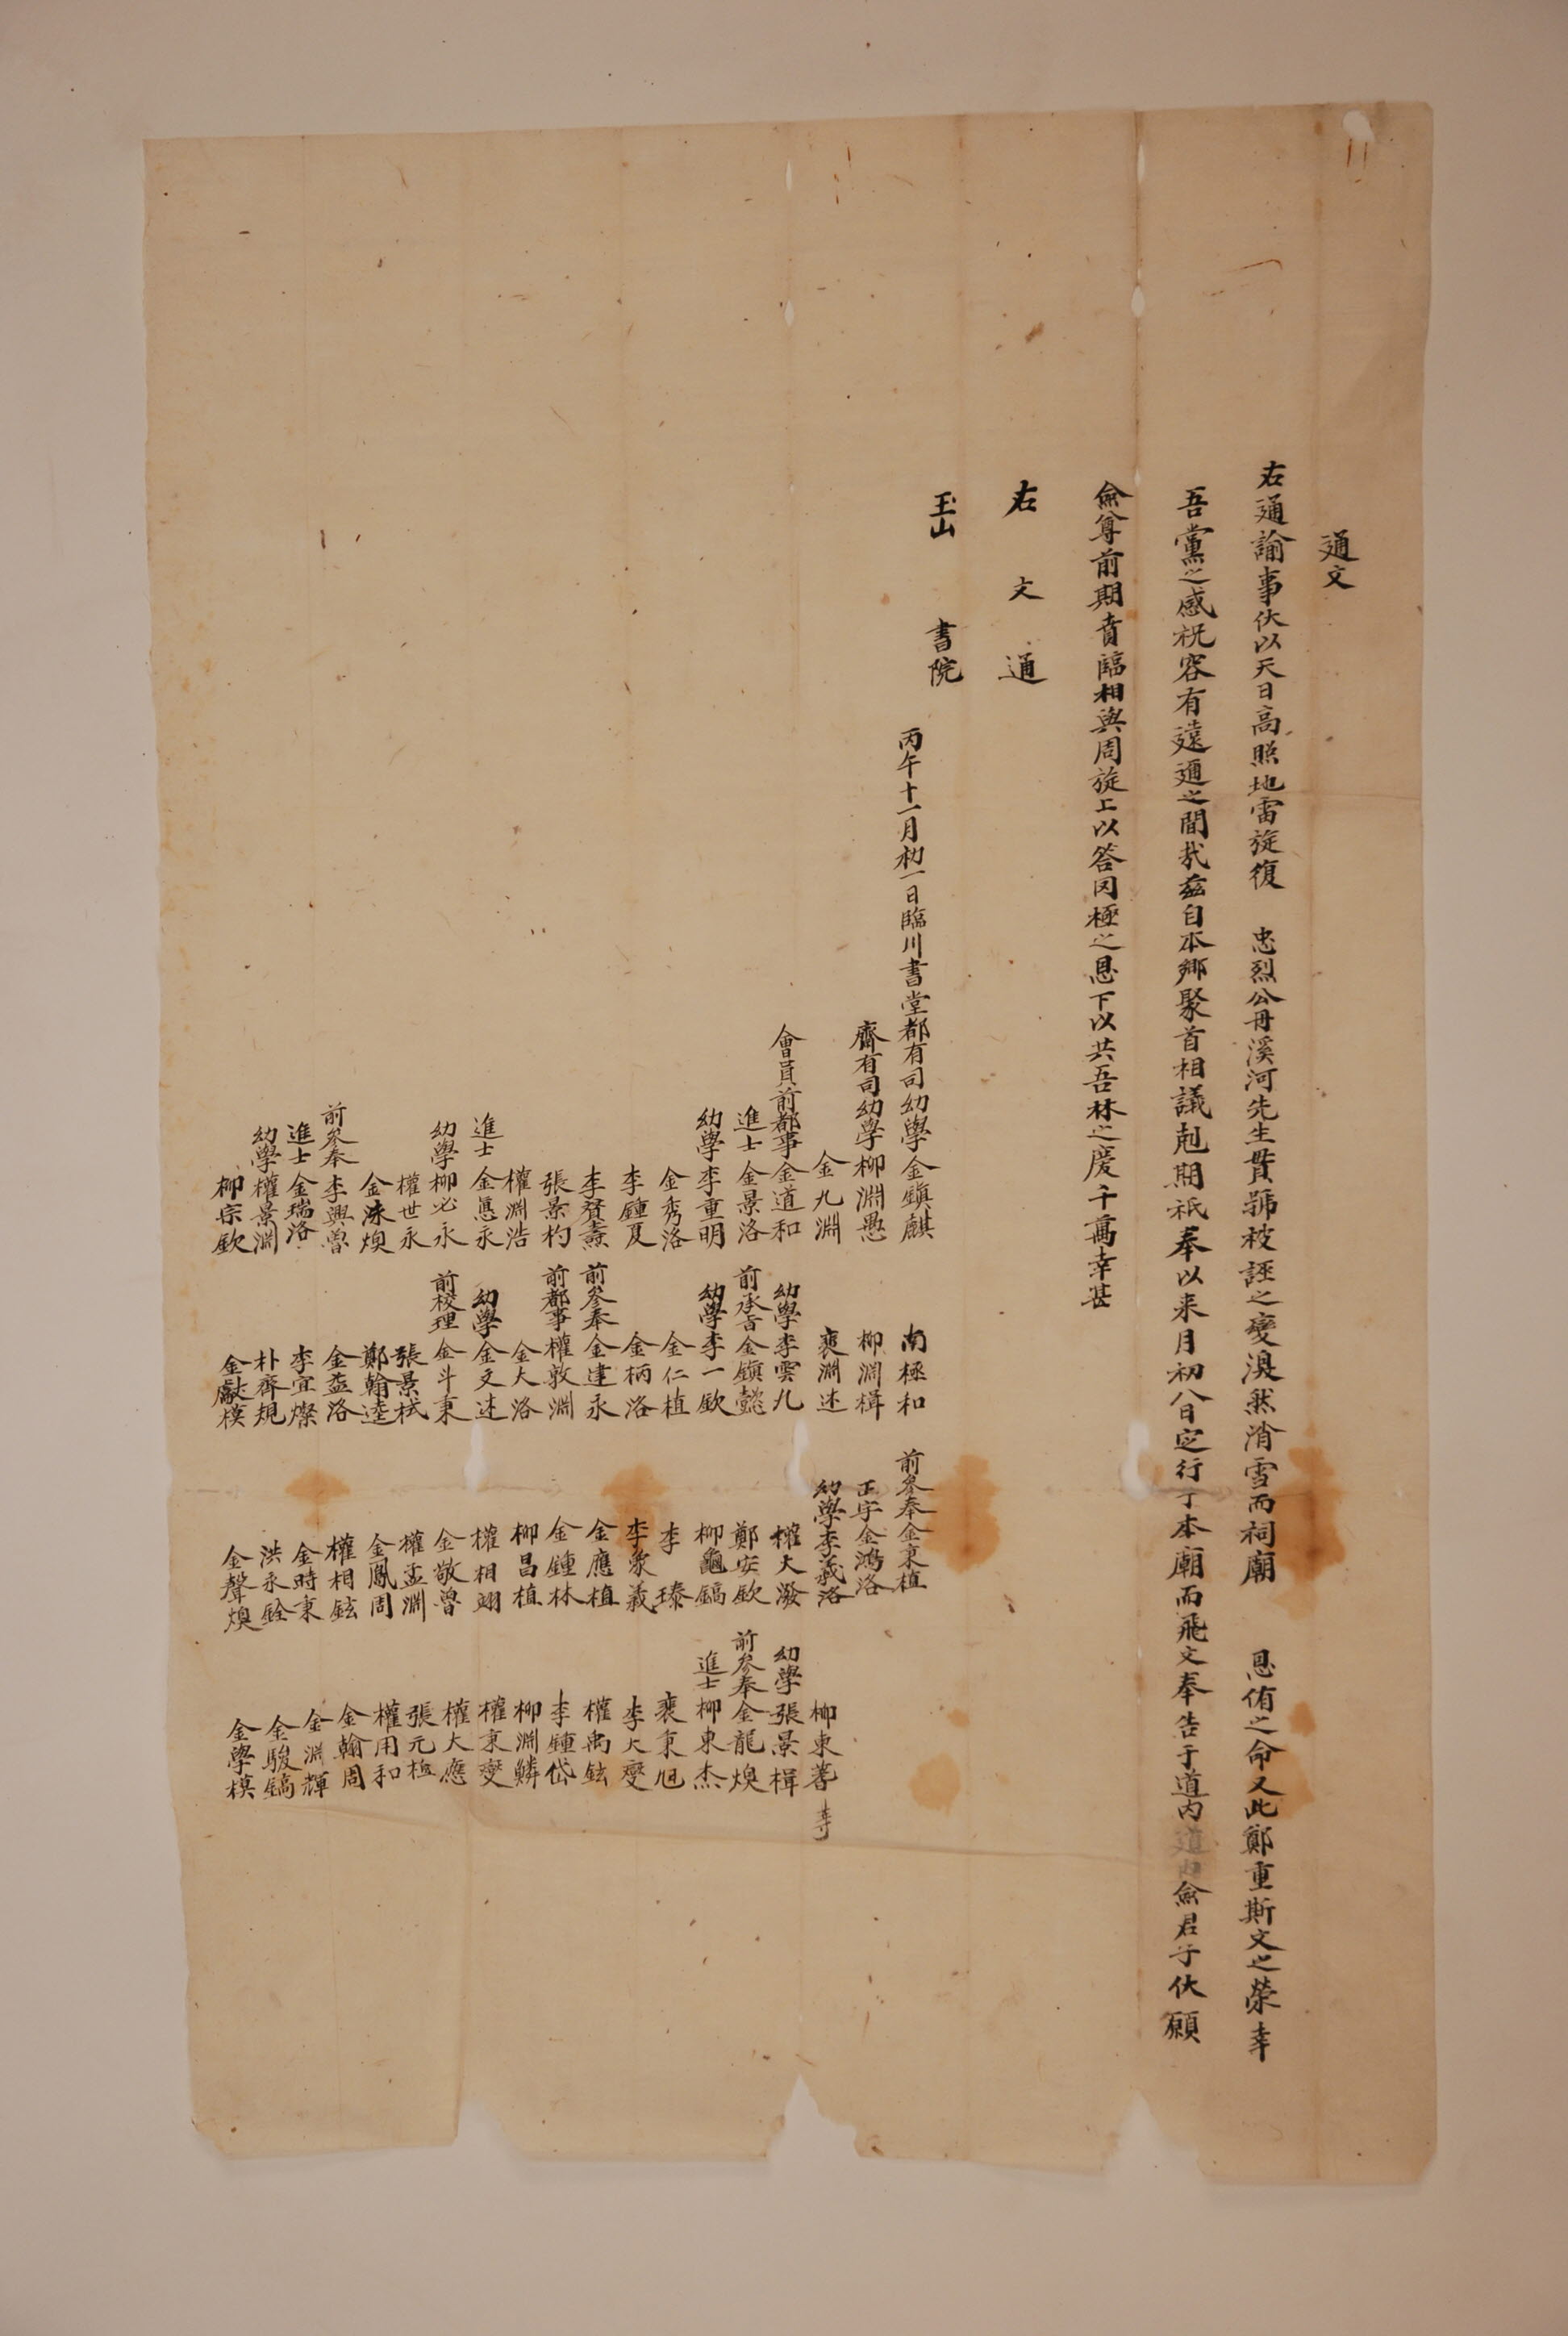 通文
右通諭事伏以天日高照地雷旋復　忠烈公丹溪河先生貫號被誣之變渙然消雪而祠廟　恩侑之命又此鄭重斯文之榮幸
吾黨之感祝容有遠邇之間哉玆自本鄕聚首相議剋期祇奉以来月初八日定行于本廟而飛文奉告于道內道內僉君子伏願
僉尊前期賁臨相與周旋上以答罔極之恩下以共吾林之慶千萬幸甚
右　文　通
玉山　書院
丙午十一月初一日臨川書堂都有司幼學金鎭麒　南極和　前參奉金東植
齋有司幼學柳淵愚　柳淵楫　正字金鴻洛
金九淵　裵淵述　幼學李義洛　柳東蓍 等
會員前都事金道和　幼學李雲九　權大潑　幼學張景楫
進士金景洛　前承旨金鎭懿　鄭安欽　前參奉金龍煥
幼學李重明　幼學李一欽　柳龜鎬　進士柳東杰
金秀洛　金仁植　李㻩　裵秉旭
李鍾夏　金柄洛　李象義　李大燮
李賛燾　前參奉金建永　金應植　權禹鉉
張景杓　前都事權敦淵　金鍾林　李鍾岱
權淵浩　金大洛　柳昌植　柳淵鱗
進士金憙永　幼學金文述　權相翊　權秉燮
幼學柳必永　前校理金斗秉　金敬曾　權大應
權世永　張景栻　權孟淵　張元檢
金洙煥　鄭翰逵　金鳳周　權用和
前參奉李興曾　金益洛　權相鉉　金翰周
進士金瑞洛　李宜燦　金時東　金淵輝
幼學權景淵　朴齊規　洪永銓　金駿鎬
柳宗欽　金獻模　金聲煥　金學模